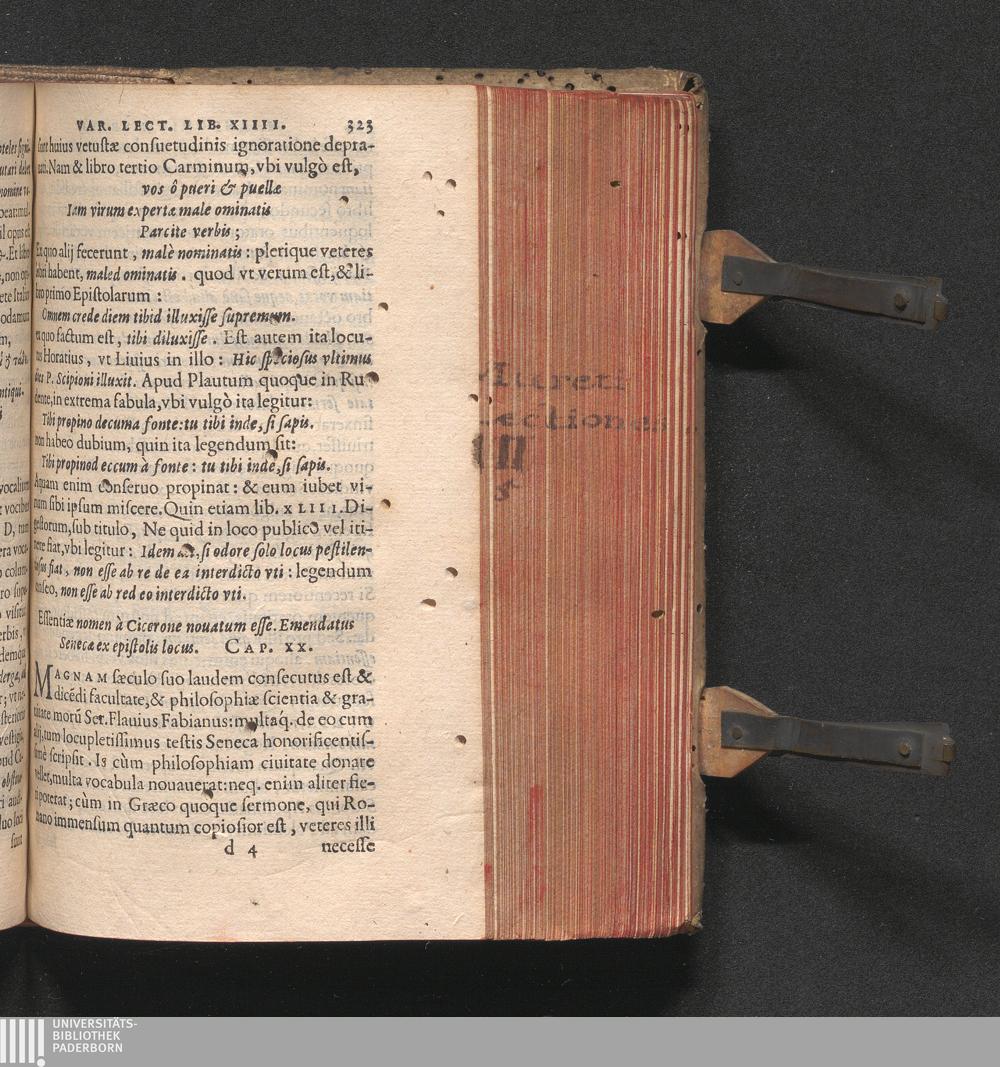 VAR. LECT. LIB. XIIII. 323
sunt huius vetustæ consuetudinis ignoratione depra-
uati. Nam & libro tertio Carminum, vbi vulgò est,
vos ô pueri & puellæ
Iam virum expertæ male ominatis
Parcite verbis;
Ex quo alij fecerunt, malè nominatis: plerique veteres
libri habent, maled ominatis. quod vt verum est, & li-
bro primo Epistolarum:
Omnem crede diem tibid illuxisse supremum.
ex quo factum est, tibi diluxisse. Est autem ita locu-
tus Horatius, vt Liuius in illo: Hic speciosus vltimus
dies P. Scipioni illuxit. Apud Plautum quoque in Ru
dente, in extrema fabula, vbi vulgò ita legitur:
Tibi propino decuma fonte: tu tibi inde, si sapis.
non habeo dubium, quin ita legendum sit:
Tibi propinod eccum à fonte: tu tibi inde, si sapis.
Aquam enim conseruo propinat: & eum iubet vi-
num sibi ipsum miscere. Quin etiam lib. XLIII. Di-
gestorum, sub titulo, Ne quid in loco publico vel iti-
nere fiat, vbi legitur: Idem ait, si odore solo locus pestilen-
tiosus fiat, non esse ab re de ea interdicto vti: legendum
censeo, non esse ab red eo interdicto vti.
Essentiæ nomen à Cicerone nouatum esse. Emendatus
Senecæ ex epistolis locus. CAP. XX.
MAGNAM sæculo suo laudem consecutus est &
dicēdi facultate, & philosophiæ scientia & gra-
uitate morū Ser. Flauius Fabianus: multaq. de eo cum
alij, tum locupletissimus testis Seneca honorificentis-
simè scripsit. Is cùm philosophiam ciuitate donare
vellet, multa vocabula nouauerat: neq. enim aliter fie-
ri poterat; cùm in Græco quoque sermone, qui Ro-
mano immensum quantum copiosior est, veteres illi
d 4 necesse
Mureti
Lectiones
UNIVERSITÄTS-
BIBLIOTHEK
PADERBORN